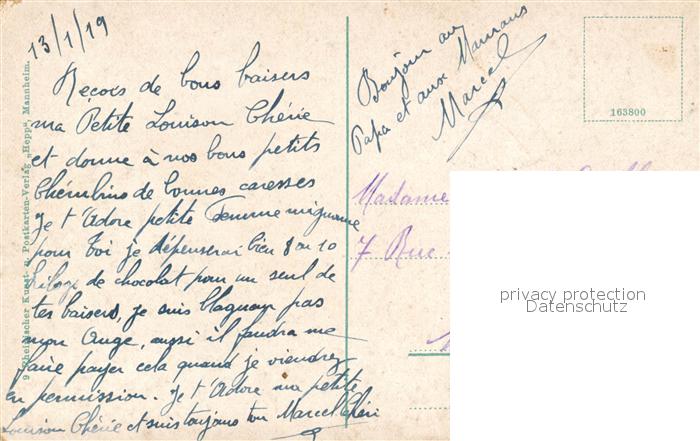 13/1/19
Reçois de bons baisers
ma Petite Louison Chérie
et donne à nos bons petits
Chérubins de bonnes caresses
Je t'Adore petite Femme mignonne
pour toi je dépenserai bien 8 ou 10
kilogs de chocolat pour un seul de
tes baisers, je suis blagueur pas
mon Ange, aussi il faudra me
faire payer cela quand je viendrez
en permission. Je t'Adore ma petite
Louison Chérie et suis toujours ton Marcel Chéri
Bonjour au
Papa et aux Mamans
Marcel
163800
Madame
7 Rue
privacy protection
Datenschutz
Rheinischer Kunst- u. Postkarten-Verlag „Hepp", Mannheim.